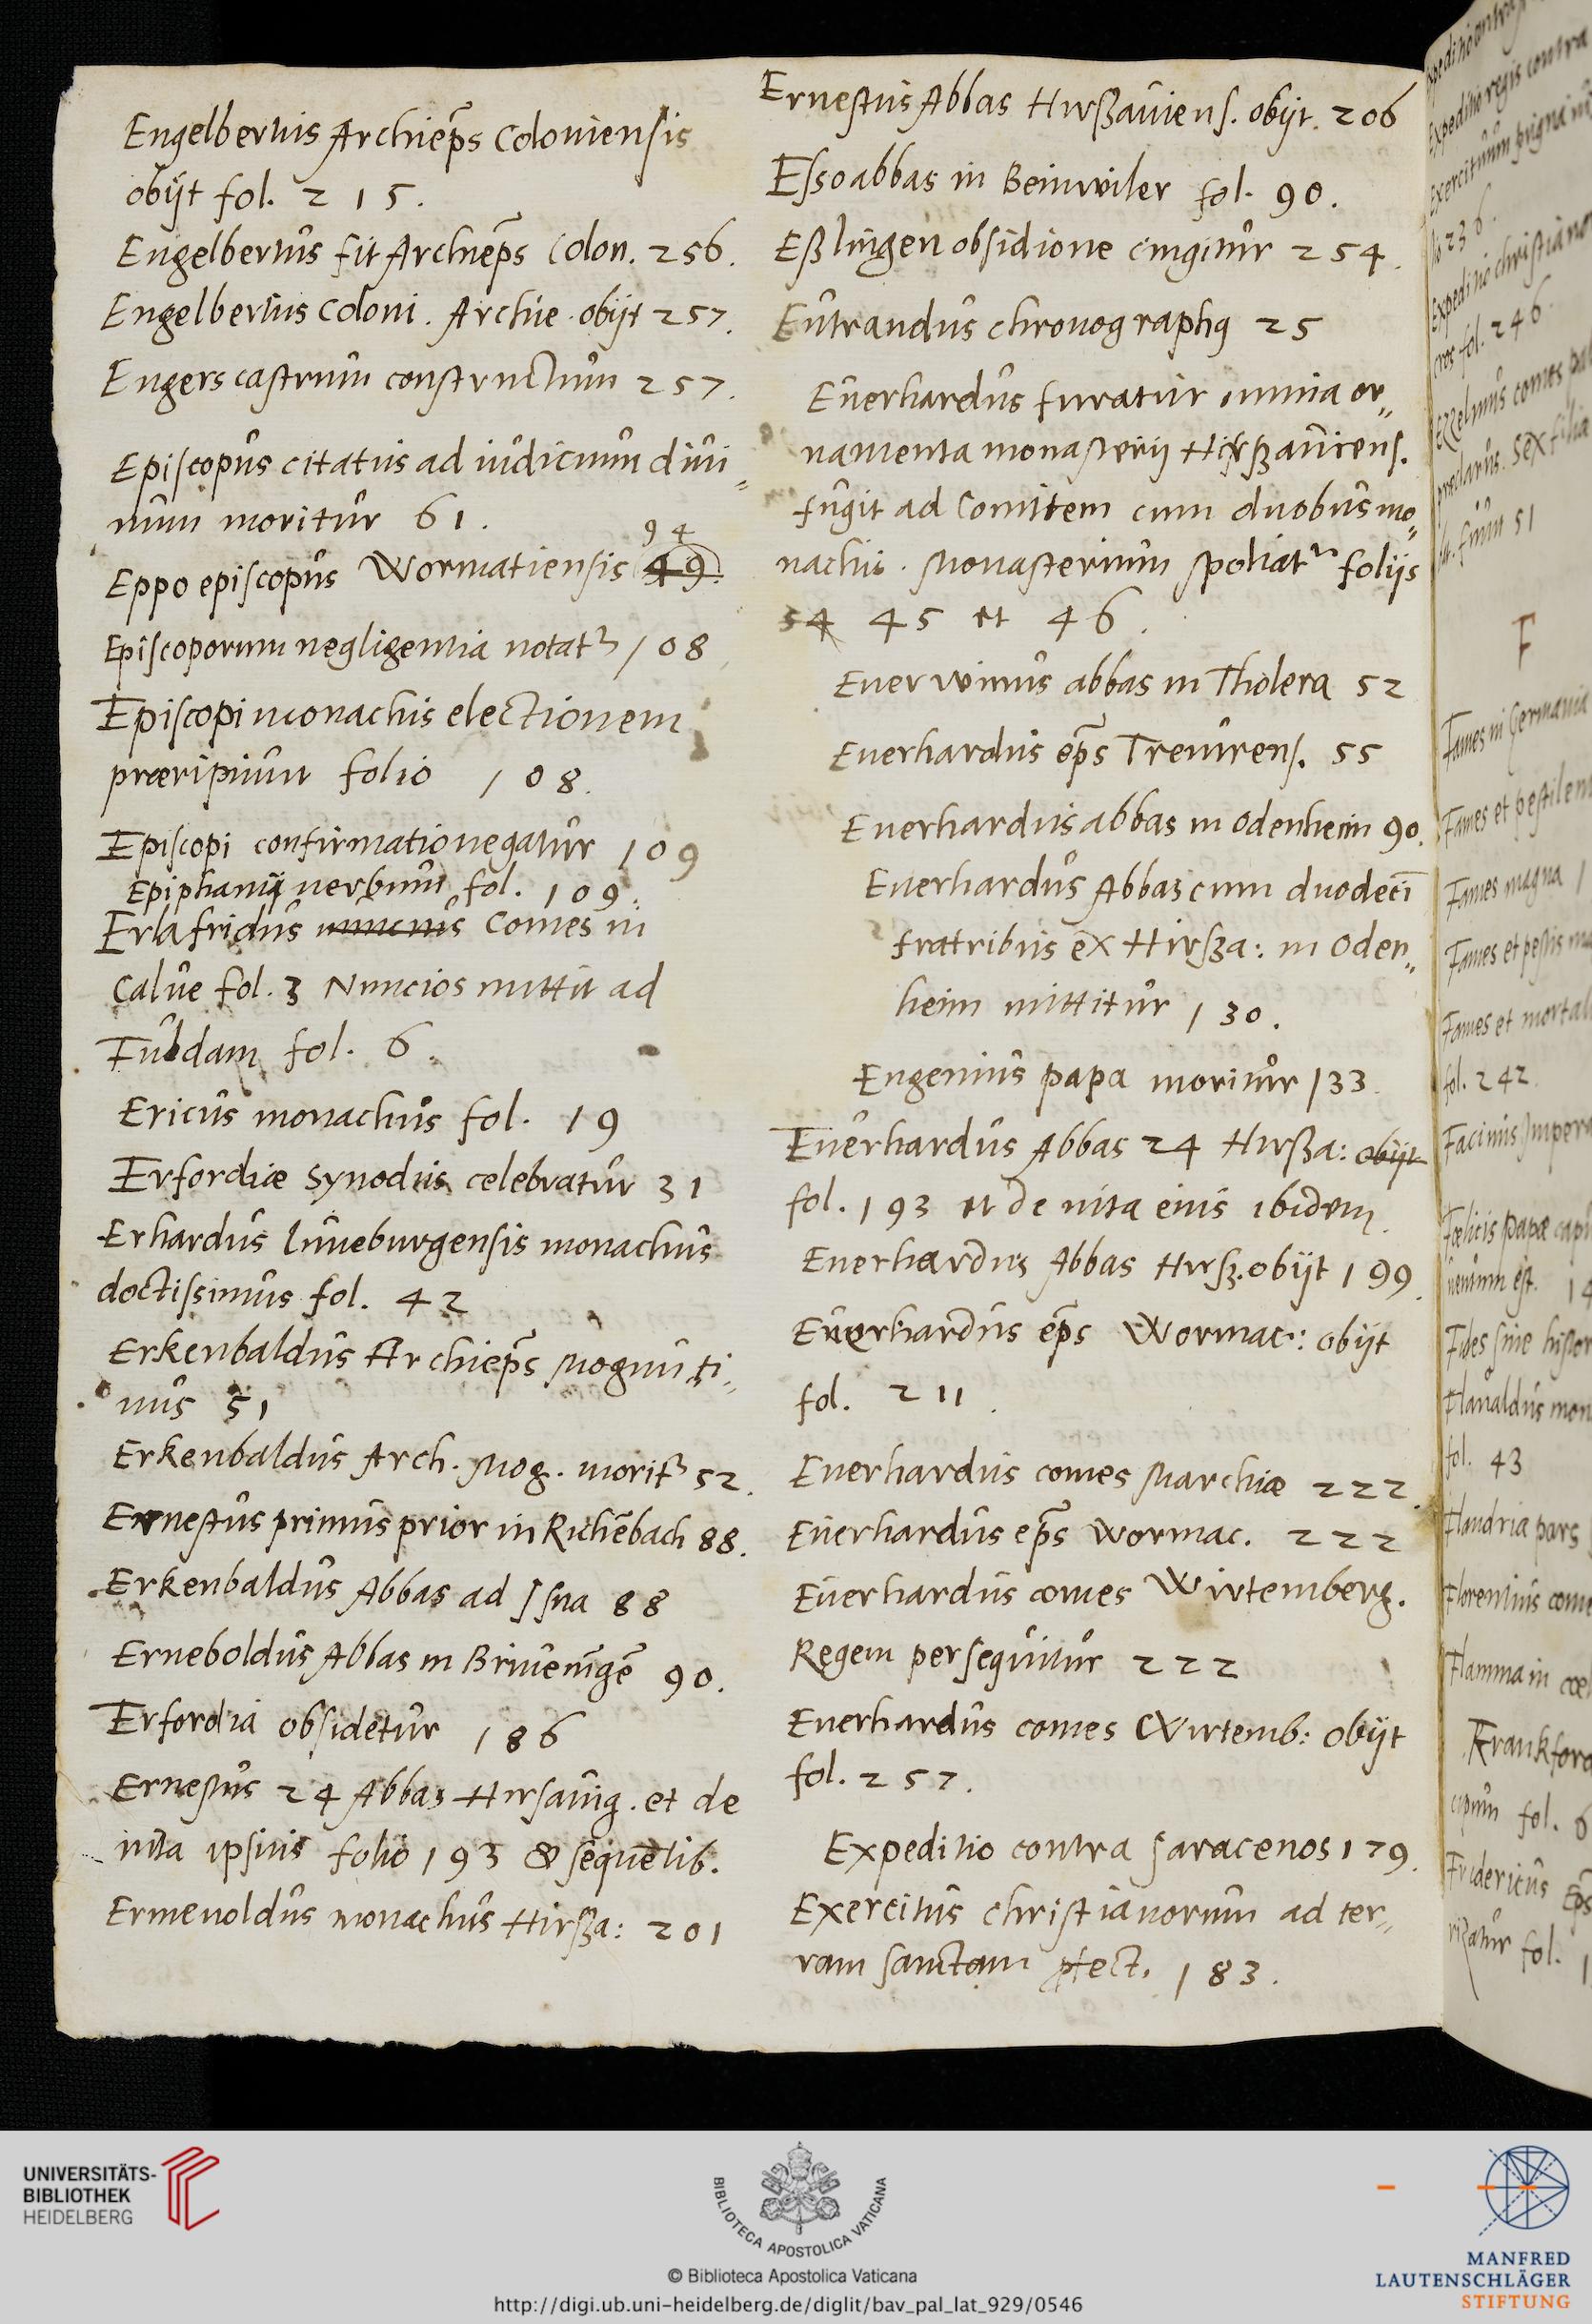 Engelbertus Archiep̃s Coloniensis
obijt fol. 215.
Engelbertus fit Archiep̃s Colon. 256.
Engelbertus Coloni. Archie. obijt 257.
Engers castrum constructum 257.
Episcopus citatus ad iudicium diui„
num moritur 61.
94
Eppo episcopus Wormatiensis 49.
Episcoporum negligentia notatᷣ 108
Episcopi monachis electionem
præripiunt folio 108.
Episcopi confirmatio negatur 109
Epiphanij uerbum fol. 109.
Erlafridus Comes in
Calue fol. 3 Nuncios mittit ad
Fuldam fol. 6.
Ericus monachus fol. 19
Erfordiæ synodus celebratur 31
Erhardus luneburgensis monachus
doctissimus fol. 42
Erkenbaldus Archiep̃s Mogunti„
nus 51
Erkenbaldus Arch. Mog. moritᷣ 52.
Ernestus primus prior in Richēbach 88.
Erkenbaldus Abbas ad Isna 88
Erneboldus Abbas in Briueningē 90.
Erfordia obsidetur 186
Ernestus 24 Abbas Hirsaugi. et de
uita ipsius folio 193 & sequētib.
Ermenoldus monachus Hirßa: 201
Ernestus Abbas Hirßauiens. obijt. 206
Esso abbas in Beinwiler fol. 90.
Eßlingen obsidione cingitur 254.
Eutrandus chronographꝰ 25
Euerhardus furatur omnia or„
namenta monasterij Hirßauiens.
fugit ad Comitem cum duobus mo„
nachis. Monasterium spoliatᷣ folijs
54 45 et 46.
Euerwinus abbas in Tholera 52
Euerhardus ep̃s Treuirens. 55
Euerhardus abbas in Odenheim 90.
Euerhardus Abbas cum duodecī
fratribus ex Hirßa: in Oden„
heim mittitur 130.
Eugenius papa moritur 133.
Euerhardus Abbas 24 Hirßa: obijt
fol. 193 et de uita eius ibidem.
Euerhardus Abbas Hirß. obijt 199.
Euerhardus ep̃s Wormac: obijt
fol. 211.
Euerhardus comes Marchiæ 222.
Euerhardus ep̃s Wormac. 222
Euerhardus comes Wirtemberg.
Regem persequitur 222
Euerhardus comes Wirtemb: obijt
fol. 257.
Expeditio contra Saracenos 179.
Exercitus christianorum ad ter„
ram sanctam 183.
Expeditio regis contra
fol. 246.
F
Fames in Germania
Fames et pestilen
Fames magna 1
Fames et pestis ma
Fames et mortali
fol. 242
Fœlicis papæ
fol. 43
Flandria pars
Florentius come
Flamma in cœl
Frankford
fol. 6
Fridericus Ep̃s
fol. 1
UNIVERSITÄTS-
BIBLIOTHEK
HEIDELBERG
BIBLIOTECA APOSTOLICA VATICANA
© Biblioteca Apostolica Vaticana
http://digi.ub.uni-heidelberg.de/diglit/bav_pal_lat_929/0546
MANFRED
LAUTENSCHLÄGER
STIFTUNG